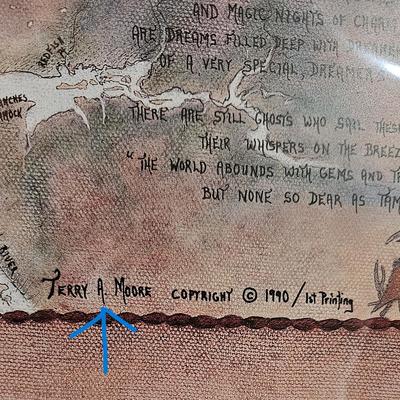 AND MAGIC NIGHTS OF
ARE DREAMS FILLED DEEP WITH
OF A VERY SPECIAL, DREAMER'S
THERE ARE STILL GHOSTS WHO SAIL
THEIR WHISPERS ON THE
"THE WORLD ABOUNDS WITH GEMS AND
BUT NONE SO DEAR AS
RIVER
TERRY A. MOORE COPYRIGHT © 1990 / 1st Printing